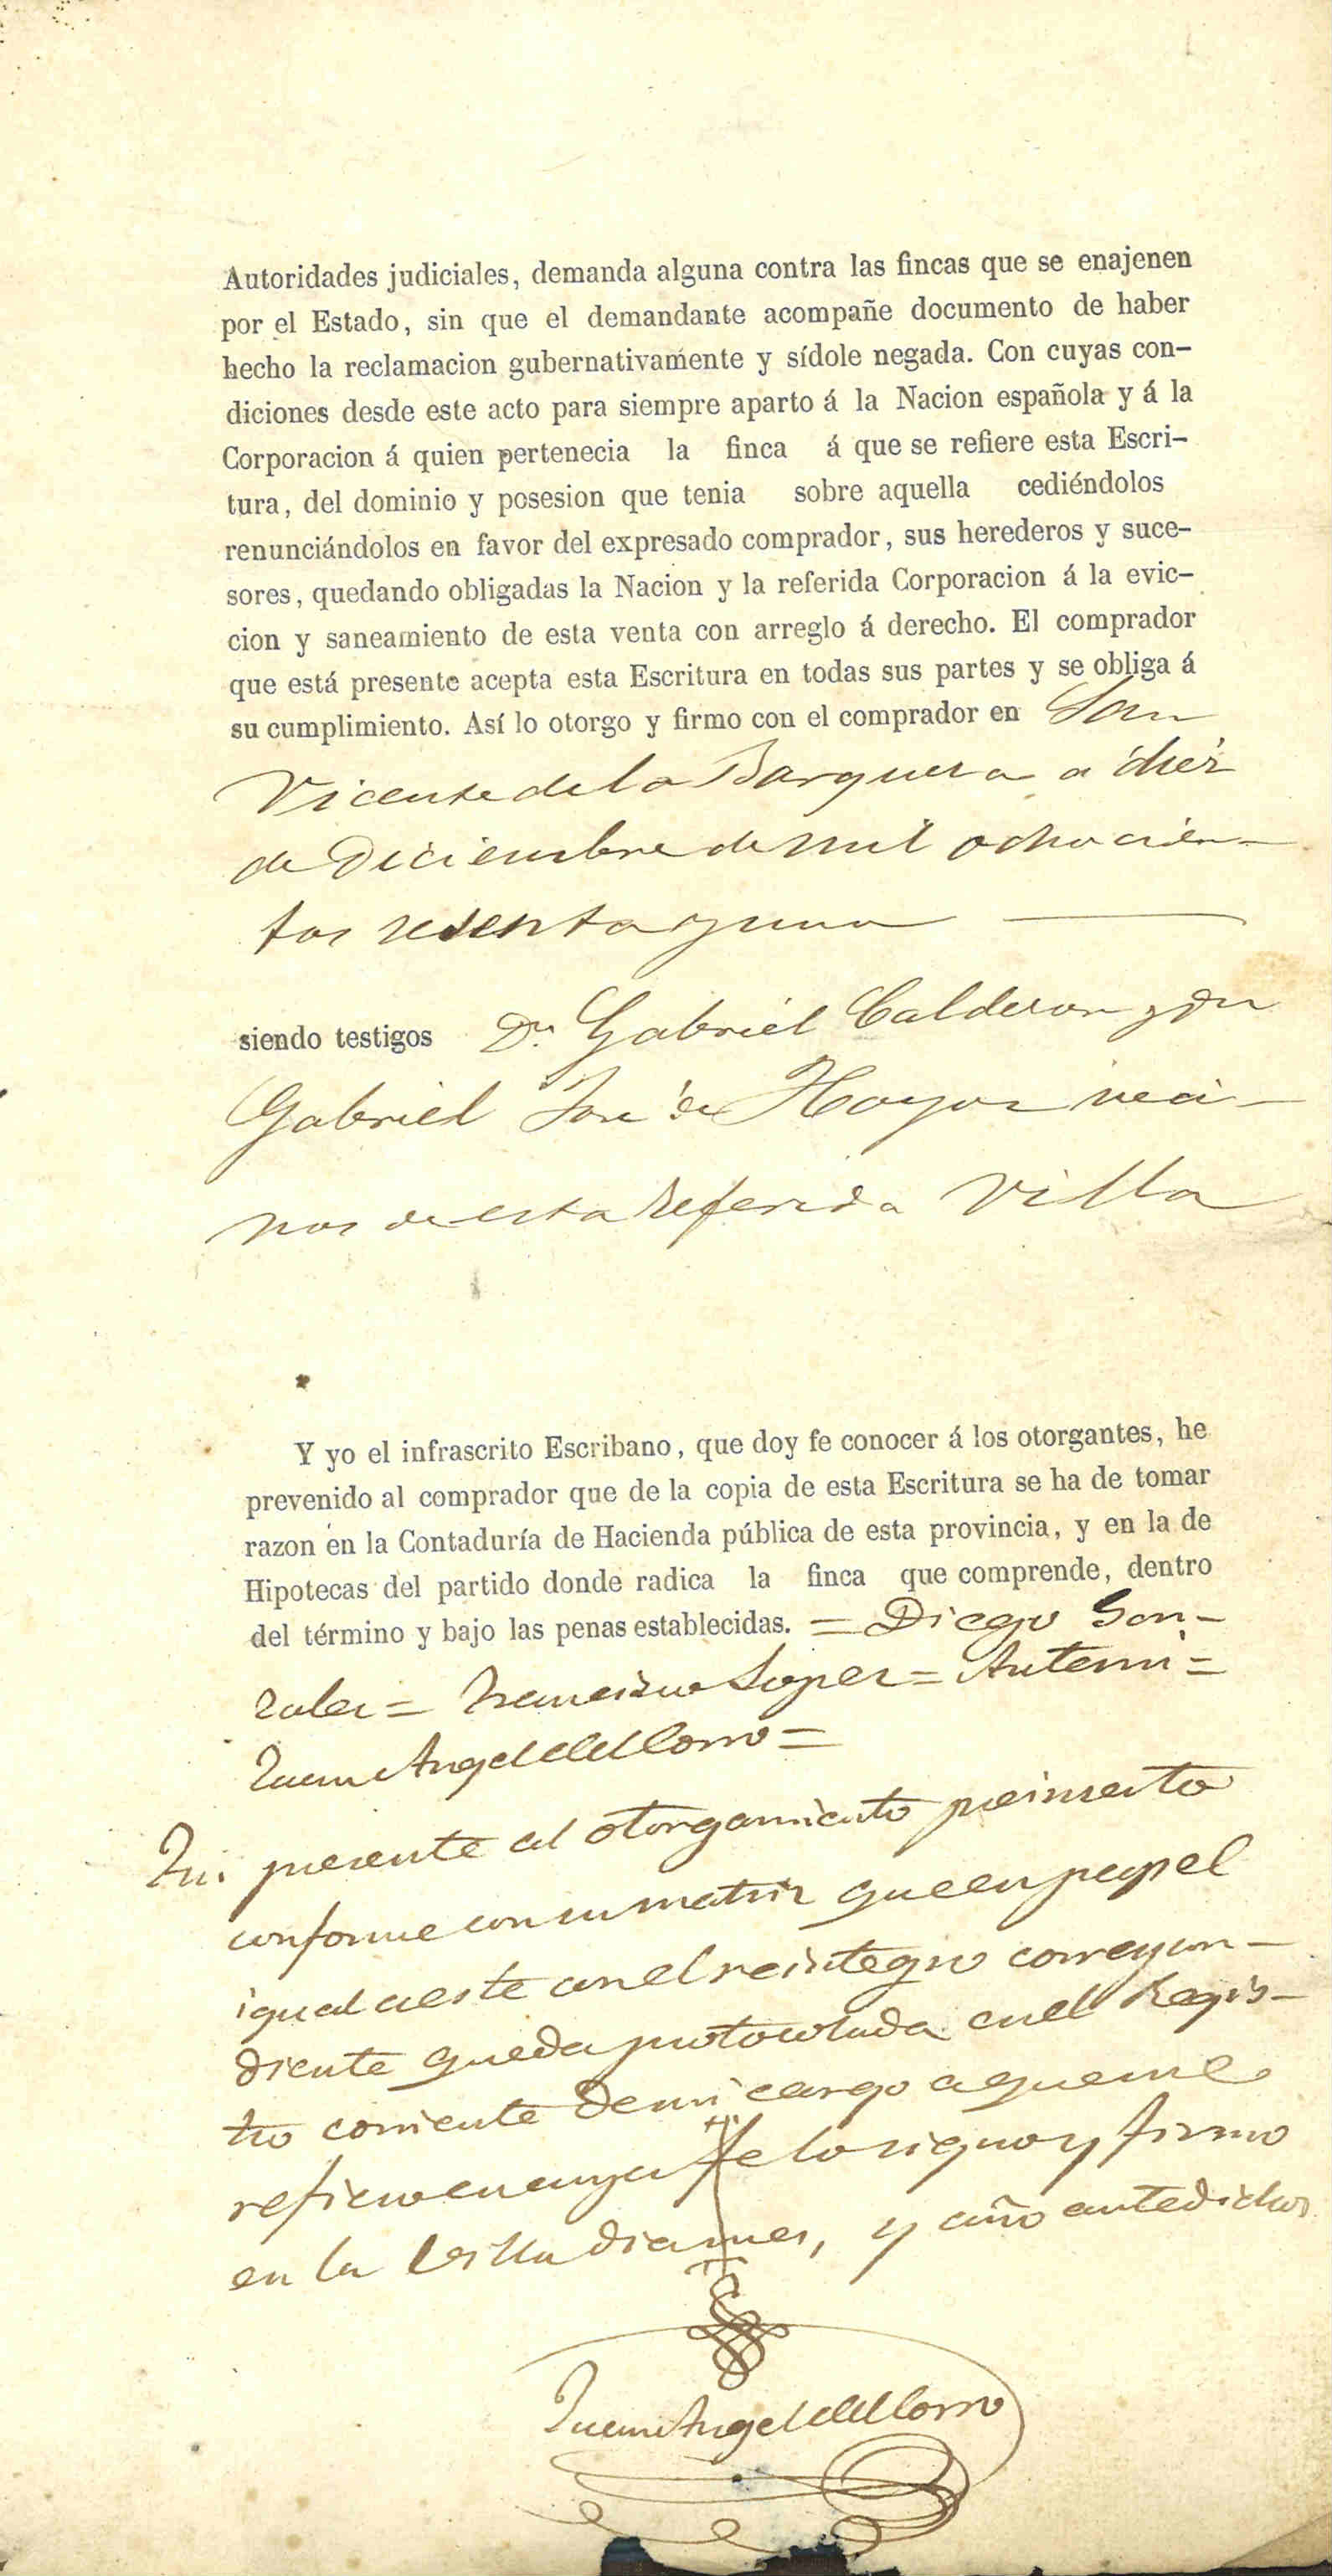 Autoridades judiciales, demanda alguna contra las fincas que se enajenen
por el Estado, sin que el demandante acompañe documento de haber
hecho la reclamacion gubernativamente y sídole negada. Con cuyas con-
diciones desde este acto para siempre aparto á la Nacion española y á la
Corporacion á quien pertenecia la finca á que se refiere esta Escri-
tura, del dominio y posesion que tenia sobre aquella cediéndolos
renunciándolos en favor del expresado comprador, sus herederos y suce-
sores, quedando obligadas la Nacion y la referida Corporacion á la evic-
cion y saneamiento de esta venta con arreglo á derecho. El comprador
que está presente acepta esta Escritura en todas sus partes y se obliga á
su cumplimiento. Así lo otorgo y firmo con el comprador en San
Vicente de la Barquera a diez
de Diciembre de mil ochocien-
tos sesenta y uno
siendo testigos Dn. Gabriel Calderon y Dn
Gabriel José de Hoyos veci-
nos de esta referida Villa
Y yo el infrascrito Escribano, que doy fe conocer á los otorgantes, he
prevenido al comprador que de la copia de esta Escritura se ha de tomar
razon en la Contaduría de Hacienda pública de esta provincia, y en la de
Hipotecas del partido donde radica la finca que comprende, dentro
del término y bajo las penas establecidas. = Diego Gon-
zalez = Francisco Lopez = Antemi =
Juan Angel del Corro =
Fui presente al otorgamiento preinserto
conforme con su matriz que en papel
igual a este con el reintegro correspon-
diente queda protocolada en el Regis-
tro corriente de mi cargo a que me
refiero en cuya fe lo signo y firmo
en la Villa dia mes, y año antedichos
Juan Angel del Corro